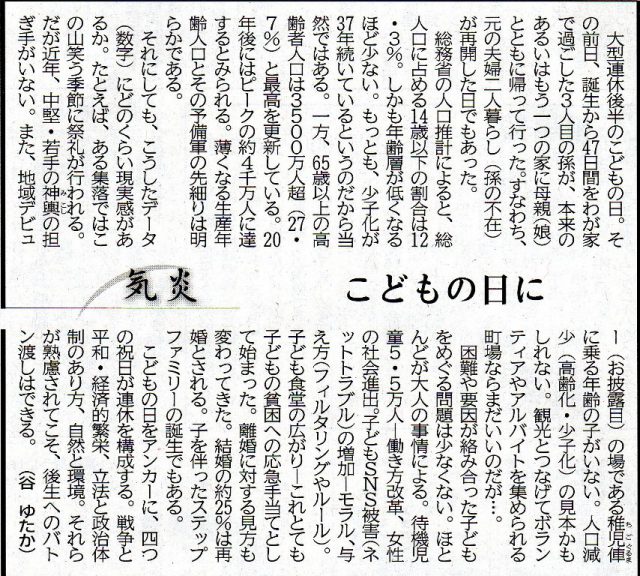 こどもの日に
気炎
大型連休後半のこどもの日。そ
の前日、誕生から47日間をわが家
で過ごした３人目の孫が、本来の
あるいはもう一つの家に母親（娘）
とともに帰って行った。すなわち、
元の夫婦二人暮らし（孫の不在）
が再開した日でもあった。
総務省の人口推計によると、総
人口に占める14歳以下の割合は12
・３％。しかも年齢層が低くなる
ほど少ない。もっとも、少子化が
37年続いているというのだから当
然ではある。一方、65歳以上の高
齢者人口は３５００万人超（27・
７％）と最高を更新している。20
年後にはピークの約４千万人に達
するとみられる。薄くなる生産年
齢人口とその予備軍の先細りは明
らかである。
それにしても、こうしたデータ
（数字）にどのくらい現実感があ
るか。たとえば、ある集落ではこ
の山笑う季節に祭礼が行われる。
だが近年、中堅・若手の神輿（みこし）の担
ぎ手がいない。また、地域デビュ
ー（お披露目）の場である稚児俥（ちごぐるま）
に乗る年齢の子がいない。人口減
少（高齢化・少子化）の見本かも
しれない。観光とつなげてボラン
ティアやアルバイトを集められる
町場ならまだいいのだが…。
困難や要因が絡み合った子ども
をめぐる問題は少なくない。ほと
んどが大人の事情による。待機児
童５・５万人―働き方改革、女性
の社会進出。子どもSNS被害（ネ
ットトラブル）の増加―モラル、与
え方（フィルタリングやルール）。
子ども食堂の広がり―これとても
子どもの貧困への応急手当てとし
て始まった。離婚に対する見方も
変わってきた。結婚の約25％は再
婚とされる。子を伴ったステップ
ファミリーの誕生でもある。
こどもの日をアンカーに、四つ
の祝日が連休を構成する。戦争と
平和・経済的繁栄、立法と政治体
制のあり方、自然と環境。それら
が熟慮されてこそ、後生へのバト
ン渡しはできる。　（谷　ゆたか）